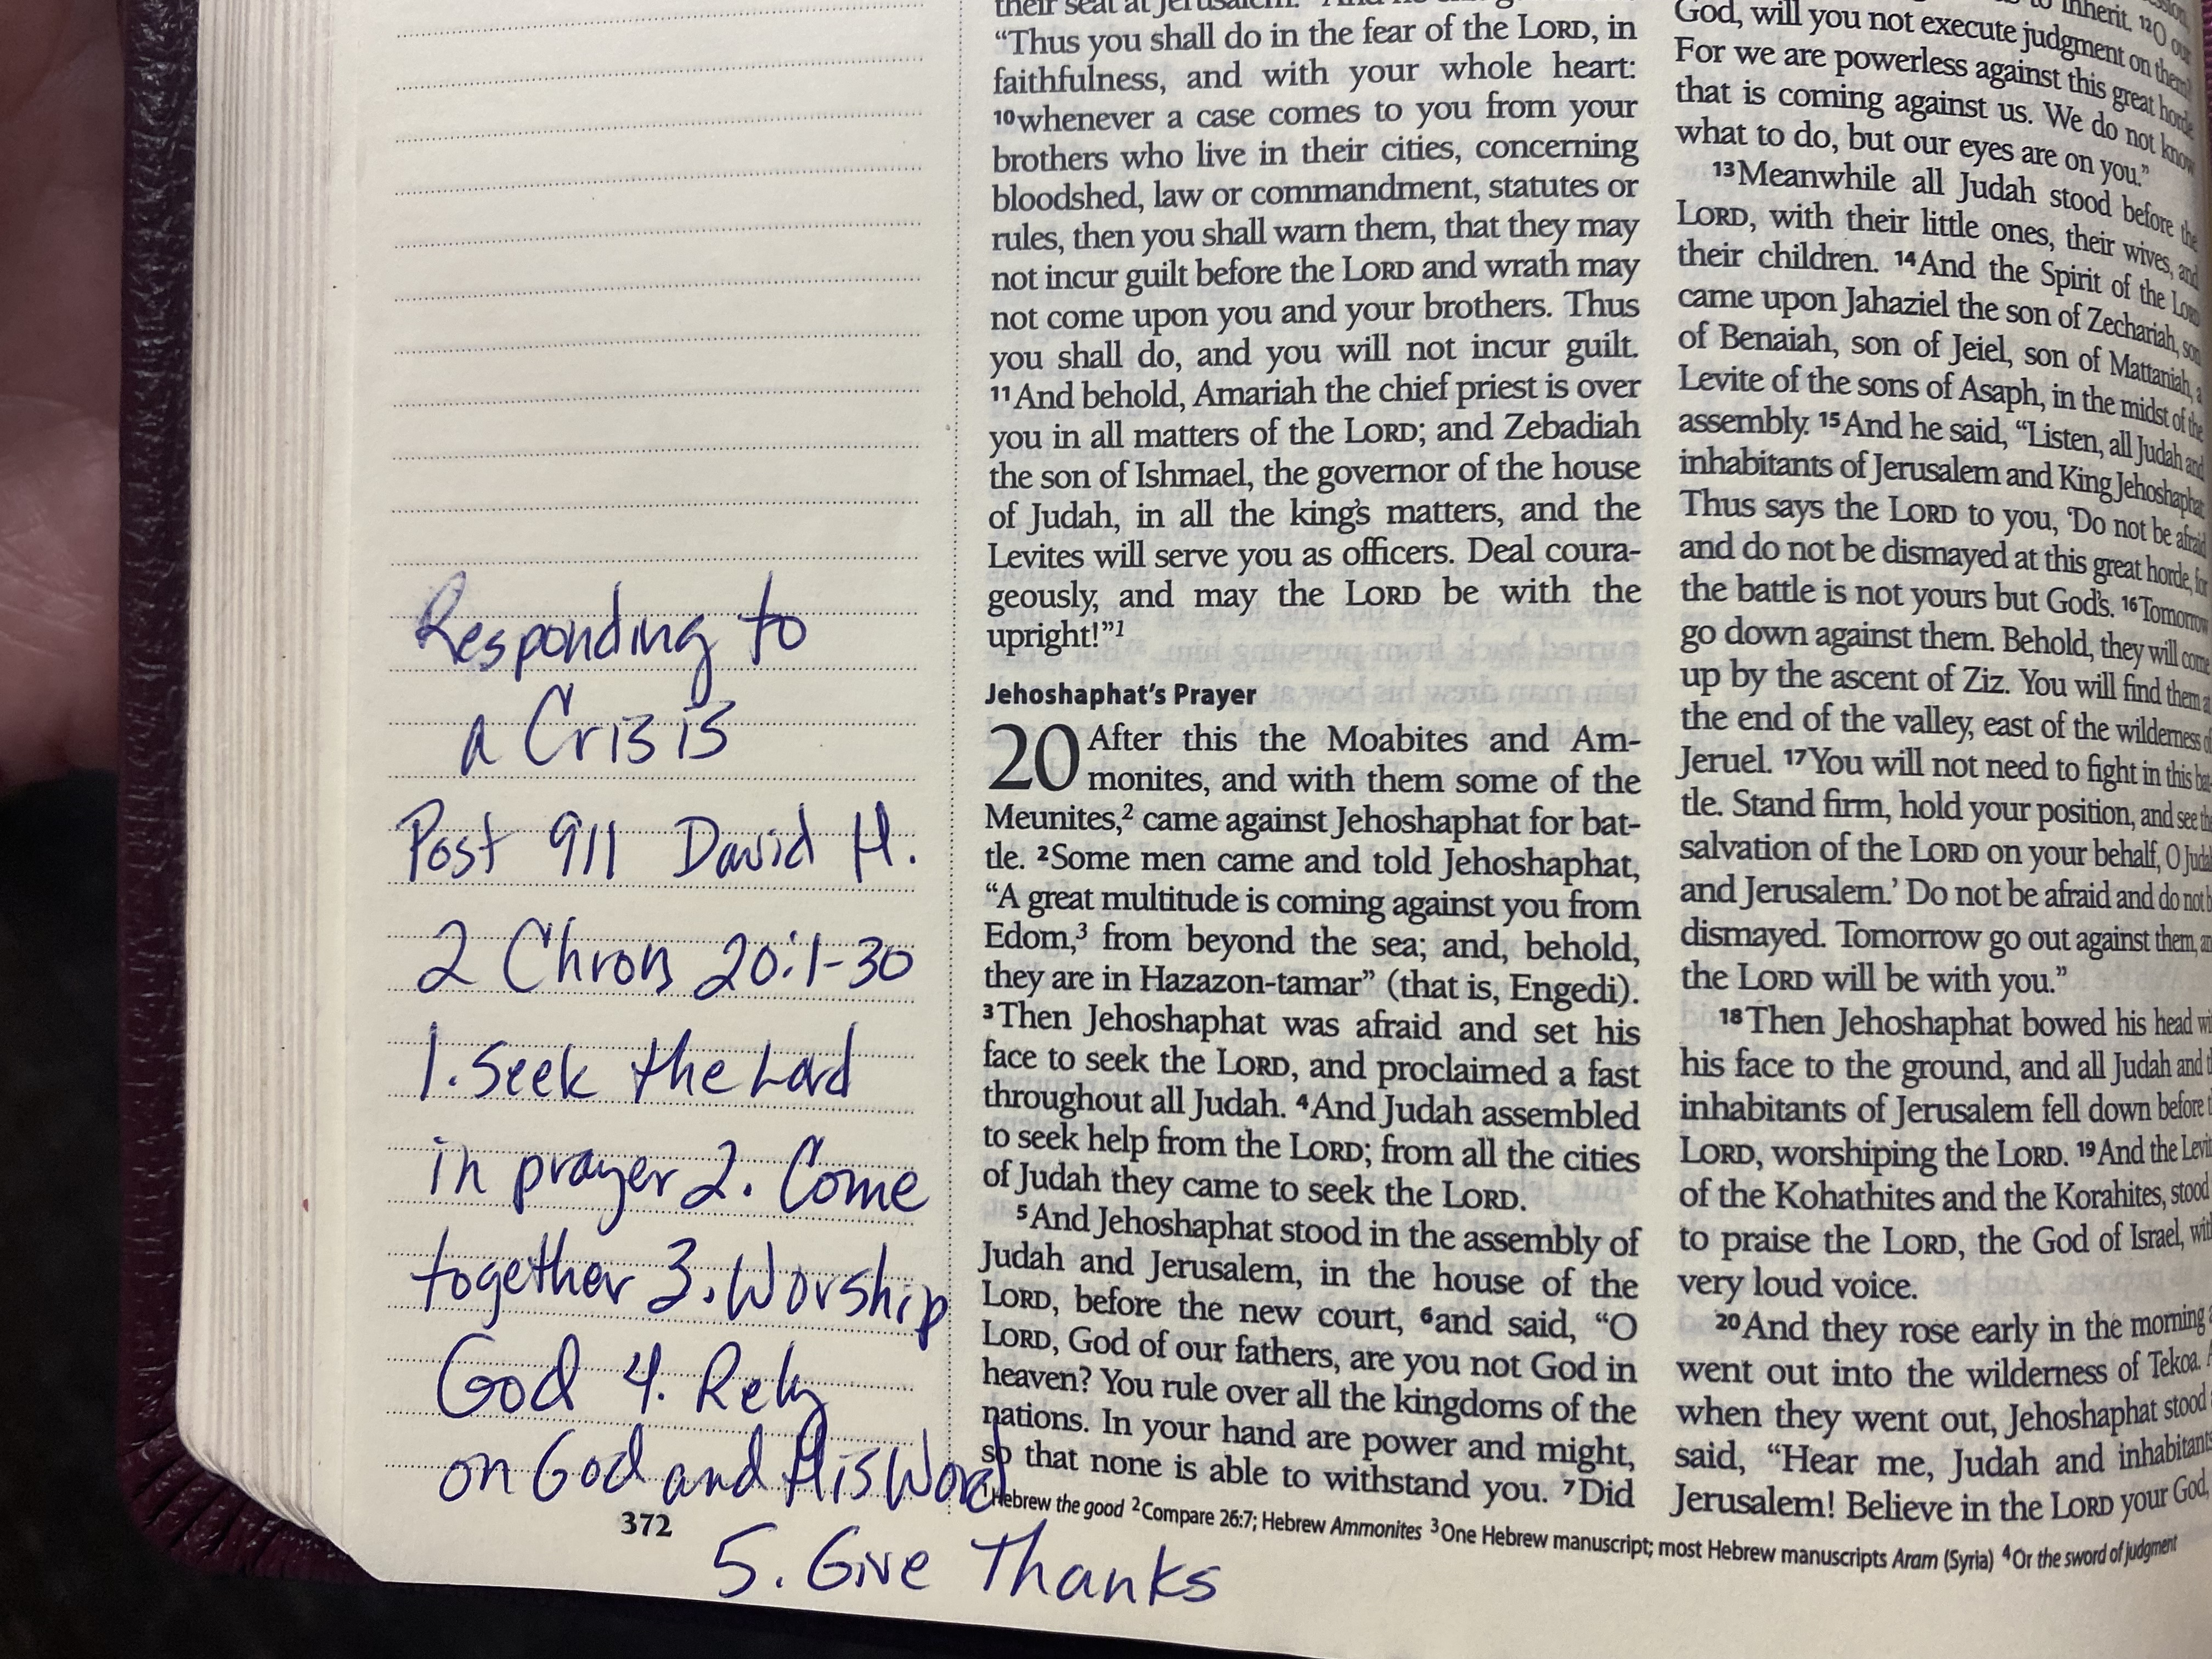 Responding to
a Crisis
Post 911 David H.
2 Chron 20:1-30
1. Seek the Lord
in prayer 2. Come
together 3. Worship
God 4. Rely
on God and His Word
372
5. Give Thanks
their seat at Jerusalem.
“Thus you shall do in the fear of the LORD, in
faithfulness, and with your whole heart:
10whenever a case comes to you from your
brothers who live in their cities, concerning
bloodshed, law or commandment, statutes or
rules, then you shall warn them, that they may
not incur guilt before the LORD and wrath may
not come upon you and your brothers. Thus
you shall do, and you will not incur guilt.
11And behold, Amariah the chief priest is over
you in all matters of the LORD; and Zebadiah
the son of Ishmael, the governor of the house
of Judah, in all the king’s matters, and the
Levites will serve you as officers. Deal coura-
geously, and may the LORD be with the
upright!”1
Jehoshaphat’s Prayer
20 After this the Moabites and Am-
monites, and with them some of the
Meunites,2 came against Jehoshaphat for bat-
tle. 2Some men came and told Jehoshaphat,
“A great multitude is coming against you from
Edom,3 from beyond the sea; and, behold,
they are in Hazazon-tamar” (that is, Engedi).
3Then Jehoshaphat was afraid and set his
face to seek the LORD, and proclaimed a fast
throughout all Judah. 4And Judah assembled
to seek help from the LORD; from all the cities
of Judah they came to seek the LORD.
5And Jehoshaphat stood in the assembly of
Judah and Jerusalem, in the house of the
LORD, before the new court, 6and said, “O
LORD, God of our fathers, are you not God in
heaven? You rule over all the kingdoms of the
nations. In your hand are power and might,
so that none is able to withstand you. 7Did
to inherit. 12O our
God, will you not execute judgment on them?
For we are powerless against this great horde
that is coming against us. We do not know
what to do, but our eyes are on you.”
13Meanwhile all Judah stood before the
LORD, with their little ones, their wives, and
their children. 14And the Spirit of the LORD
came upon Jahaziel the son of Zechariah, son
of Benaiah, son of Jeiel, son of Mattaniah, a
Levite of the sons of Asaph, in the midst of the
assembly. 15And he said, “Listen, all Judah and
inhabitants of Jerusalem and King Jehoshaphat:
Thus says the LORD to you, ‘Do not be afraid
and do not be dismayed at this great horde, for
the battle is not yours but God’s. 16Tomorrow
go down against them. Behold, they will come
up by the ascent of Ziz. You will find them at
the end of the valley, east of the wilderness of
Jeruel. 17You will not need to fight in this bat-
tle. Stand firm, hold your position, and see the
salvation of the LORD on your behalf, O Judah
and Jerusalem.’ Do not be afraid and do not b
dismayed. Tomorrow go out against them, an
the LORD will be with you.”
18Then Jehoshaphat bowed his head wi
his face to the ground, and all Judah and t
inhabitants of Jerusalem fell down before t
LORD, worshiping the LORD. 19And the Levi
of the Kohathites and the Korahites, stood
to praise the LORD, the God of Israel, wit
very loud voice.
20And they rose early in the morning a
went out into the wilderness of Tekoa. A
when they went out, Jehoshaphat stood
said, “Hear me, Judah and inhabitants
Jerusalem! Believe in the LORD your God,
1Hebrew the good 2Compare 26:7; Hebrew Ammonites 3One Hebrew manuscript; most Hebrew manuscripts Aram (Syria) 4Or the sword of judgment